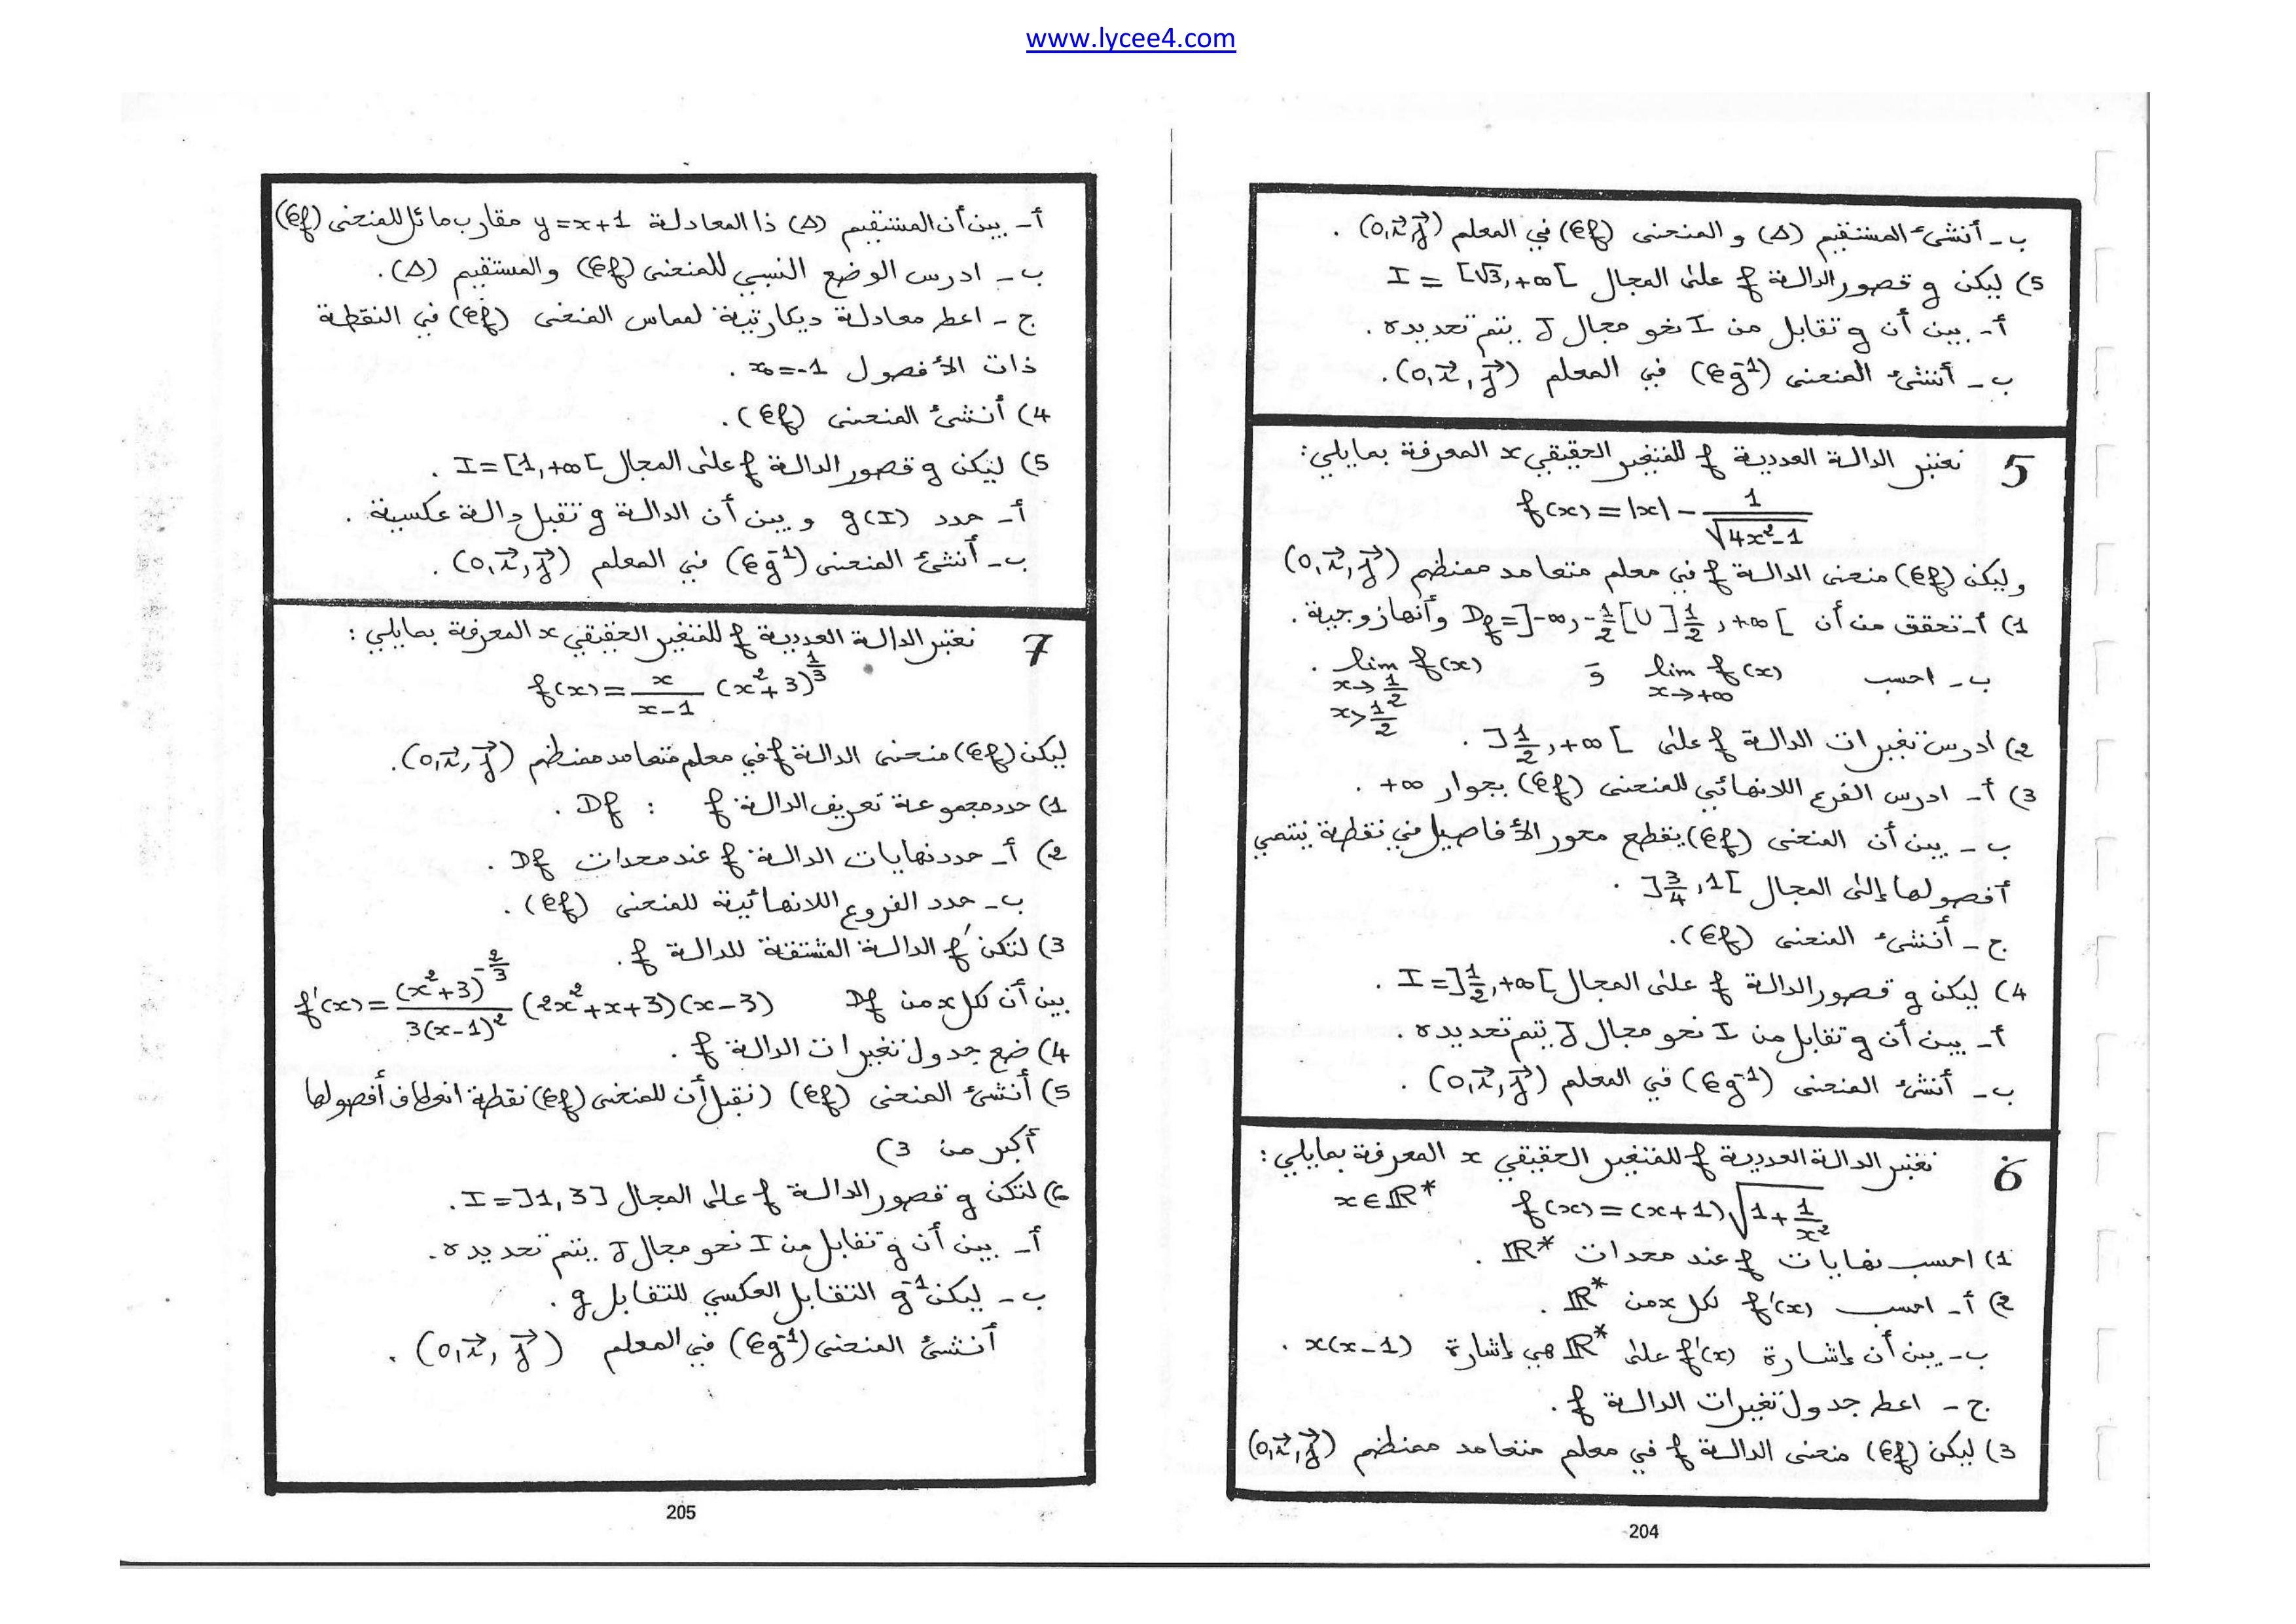 www.lycee4.com
ب - أنشئ المستقيم (Δ) و المنحنى (𝒞f) في المعلم (O, i⃗, j⃗) .
5) ليكن g قصور الدالة f على المجال I = [√3, +∞[
أ - بين أن g تقابل من I نحو مجال J يتم تحديده .
ب - أنشئ المنحنى (𝒞g⁻¹) في المعلم (O, i⃗, j⃗) .
5 نعتبر الدالة العددية f للمتغير الحقيقي x المعرفة بمايلي :
f(x) = |x| - 1/√(4x²-1)
وليكن (𝒞f) منحنى الدالة f في معلم متعامد ممنظم (O, i⃗, j⃗)
1) أ - تحقق من أن Df = ]-∞, -1/2[ ∪ ]1/2, +∞[ وأنها زوجية .
ب - احسب lim f(x) x→+∞ و lim f(x) x→1/2 x>1/2 .
2) ادرس تغيرات الدالة f على ]1/2, +∞[ .
3) أ - ادرس الفرع اللانهائي للمنحنى (𝒞f) بجوار +∞ .
ب - بين أن المنحنى (𝒞f) يقطع محور الأفاصيل في نقطة ينتمي
أفصولها إلى المجال ]3/4, 1[ .
ج - أنشئ المنحنى (𝒞f) .
4) ليكن g قصور الدالة f على المجال I = ]1/2, +∞[ .
أ - بين أن g تقابل من I نحو مجال J يتم تحديده .
ب - أنشئ المنحنى (𝒞g⁻¹) في المعلم (O, i⃗, j⃗) .
6 نعتبر الدالة العددية f للمتغير الحقيقي x المعرفة بمايلي :
f(x) = (x+1)√(1+1/x²) x∈ℝ*
1) احسب نهايات f عند محدات ℝ* .
2) أ - احسب f'(x) لكل x من ℝ* .
ب - بين أن إشارة f'(x) على ℝ* هي إشارة x(x-1) .
ج - اعط جدول تغيرات الدالة f .
3) ليكن (𝒞f) منحنى الدالة f في معلم متعامد ممنظم (O, i⃗, j⃗)
204
أ - بين أن المستقيم (Δ) ذا المعادلة y = x+1 مقارب مائل للمنحنى (𝒞f)
ب - ادرس الوضع النسبي للمنحنى (𝒞f) والمستقيم (Δ) .
ج - اعط معادلة ديكارتية لمماس المنحنى (𝒞f) في النقطة
ذات الأفصول x₀ = -1 .
4) أنشئ المنحنى (𝒞f) .
5) ليكن g قصور الدالة f على المجال I = [1, +∞[ .
أ - حدد g(I) و بين أن الدالة g تقبل دالة عكسية .
ب - أنشئ المنحنى (𝒞g⁻¹) في المعلم (O, i⃗, j⃗) .
7 نعتبر الدالة العددية f للمتغير الحقيقي x المعرفة بمايلي :
f(x) = x/(x-1) (x²+3)^(1/3)
ليكن (𝒞f) منحنى الدالة f في معلم متعامد ممنظم (O, i⃗, j⃗) .
1) حدد مجموعة تعريف الدالة f : Df .
2) أ - حدد نهايات الدالة f عند محدات Df .
ب - حدد الفروع اللانهائية للمنحنى (𝒞f) .
3) لتكن f' الدالة المشتقة للدالة f .
بين أن لكل x من Df f'(x) = (x²+3)^(-2/3)/(3(x-1)²) (2x²+x+3)(x-3)
4) ضع جدول تغيرات الدالة f .
5) أنشئ المنحنى (𝒞f) (نقبل أن للمنحنى (𝒞f) نقطة انعطاف أفصولها
أكبر من 3)
6) لتكن g قصور الدالة f على المجال I = ]1, 3] .
أ - بين أن g تقابل من I نحو مجال J يتم تحديده .
ب - ليكن g⁻¹ التقابل العكسي للتقابل g .
أنشئ المنحنى (𝒞g⁻¹) في المعلم (O, i⃗, j⃗) .
205